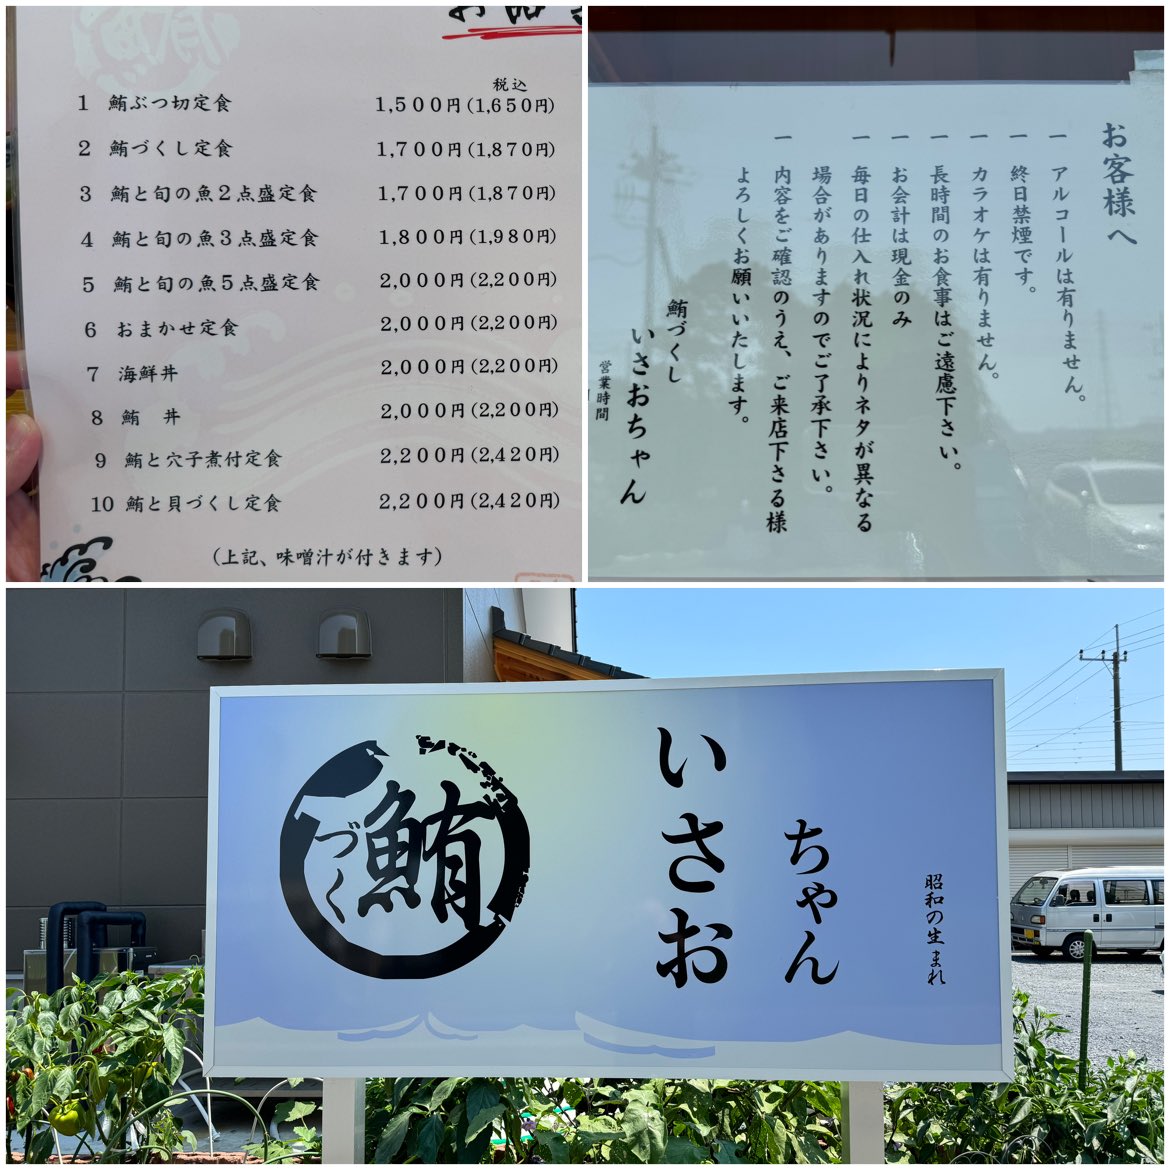 税込
1 鮪ぶつ切定食 1,500円(1,650円)
2 鮪づくし定食 1,700円(1,870円)
3 鮪と旬の魚2点盛定食 1,700円(1,870円)
4 鮪と旬の魚3点盛定食 1,800円(1,980円)
5 鮪と旬の魚5点盛定食 2,000円(2,200円)
6 おまかせ定食 2,000円(2,200円)
7 海鮮丼 2,000円(2,200円)
8 鮪 丼 2,000円(2,200円)
9 鮪と穴子煮付定食 2,200円(2,420円)
10 鮪と貝づくし定食 2,200円(2,420円)
(上記、味噌汁が付きます)
お客様へ
一 アルコールは有りません。
一 終日禁煙です。
一 カラオケは有りません。
一 長時間のお食事はご遠慮下さい。
一 お会計は現金のみ
一 毎日の仕入れ状況によりネタが異なる
場合がありますのでご了承下さい。
一 内容をご確認のうえ、ご来店下さる様
よろしくお願いいたします。
鮪づくし
いさおちゃん
営業時間
鮪
づく
いさお
ちゃん
昭和の生まれ